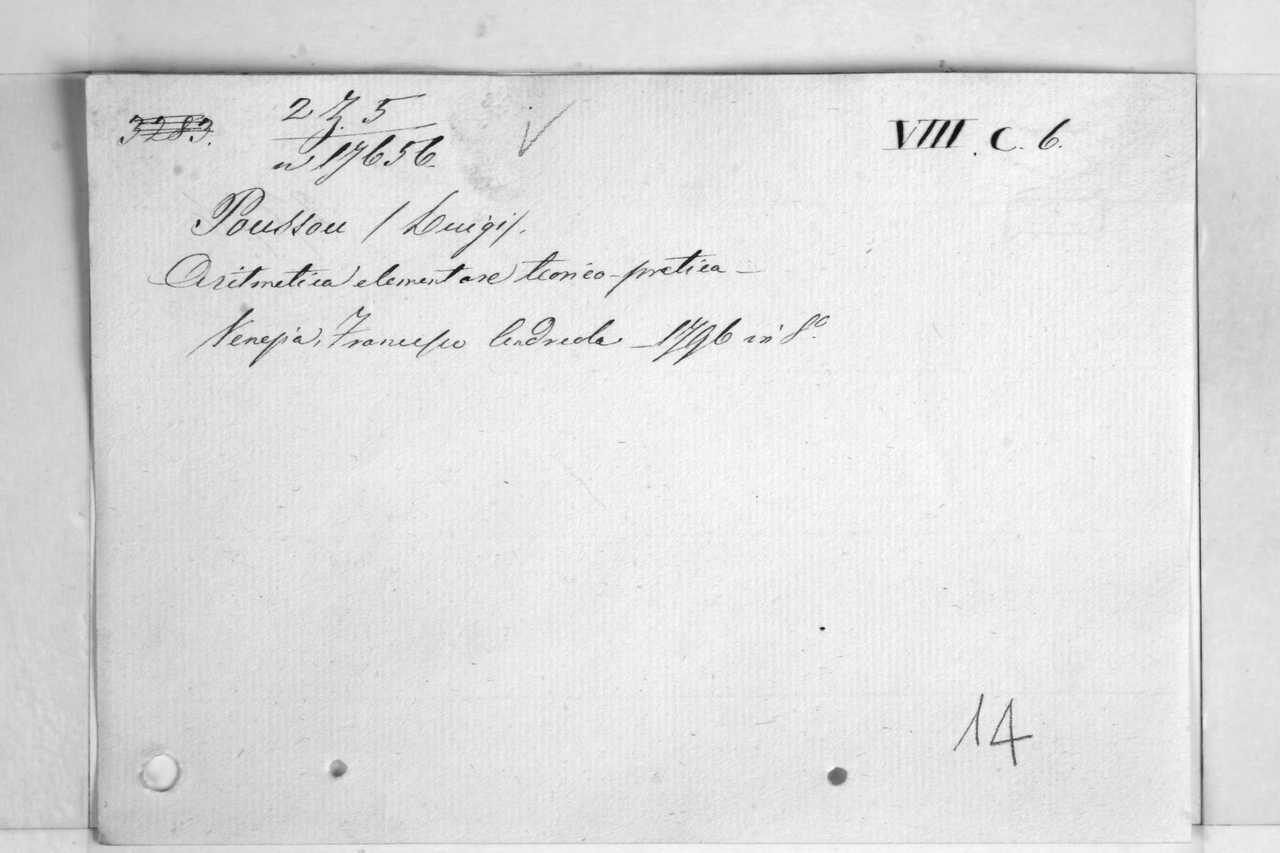 3283.
2 Z. 5
n 17656.
VIII. C. 6.
Poussou / Luigi/.
Aritmetica elementare teorico-pratica -
Venezia, Francesco Andreola - 1796 in 8º.
14